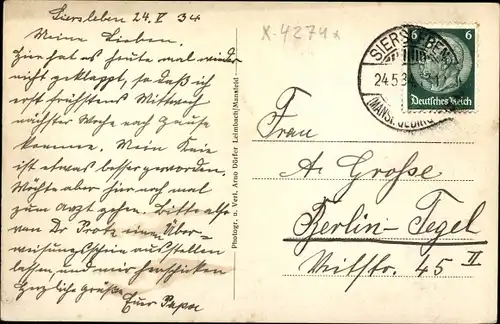 Siersleben 24. V 34
Meine Lieben.
Hier hat es heute mal wieder
nicht geklappt, so daß ich
erst frühstens Mittwoch
nächster Woche nach Hause
komme. Mein Knie
ist etwas besser geworden.
Möchte aber hier noch mal
zum Arzt gehen. Bitte also
von Dr Protz einen Über-
weisungsschein ausstellen
lassen, und mir herschicken
Herzliche Grüße
Euer Papa
Photogr. u. Verl. Arno Dörfer Leimbach/Mansfeld
X-4274
6 6
Deutsches Reich
SIERSLEBEN
24.5.34
Frau
A. Große
Berlin-Tegel
Veitstr. 45 II